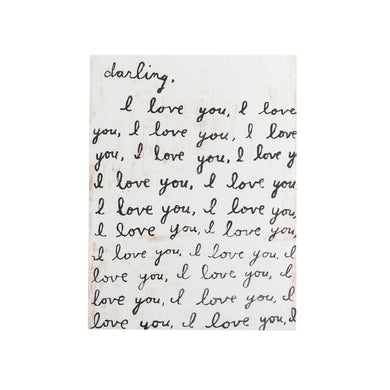 darling,
I love you, I love
you, I love you, I love
you, I love you, I love y
I love you, I love you,
I love you, I love you,
I love you, I love you,
I love you, I love you, I
love you, I love you, I
love you, I love you, I
love you, I love you, I